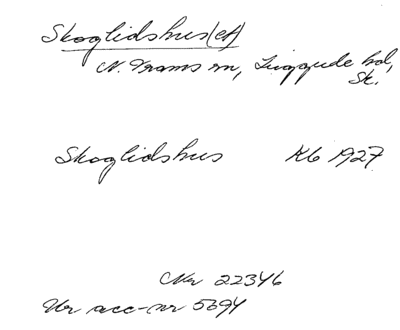 Skoglidshus(et)
N. Vrams sn, Luggude hd,
Sk.
Skoglidshus Kb 1927
Nr 22346
Ur acc-nr 5694